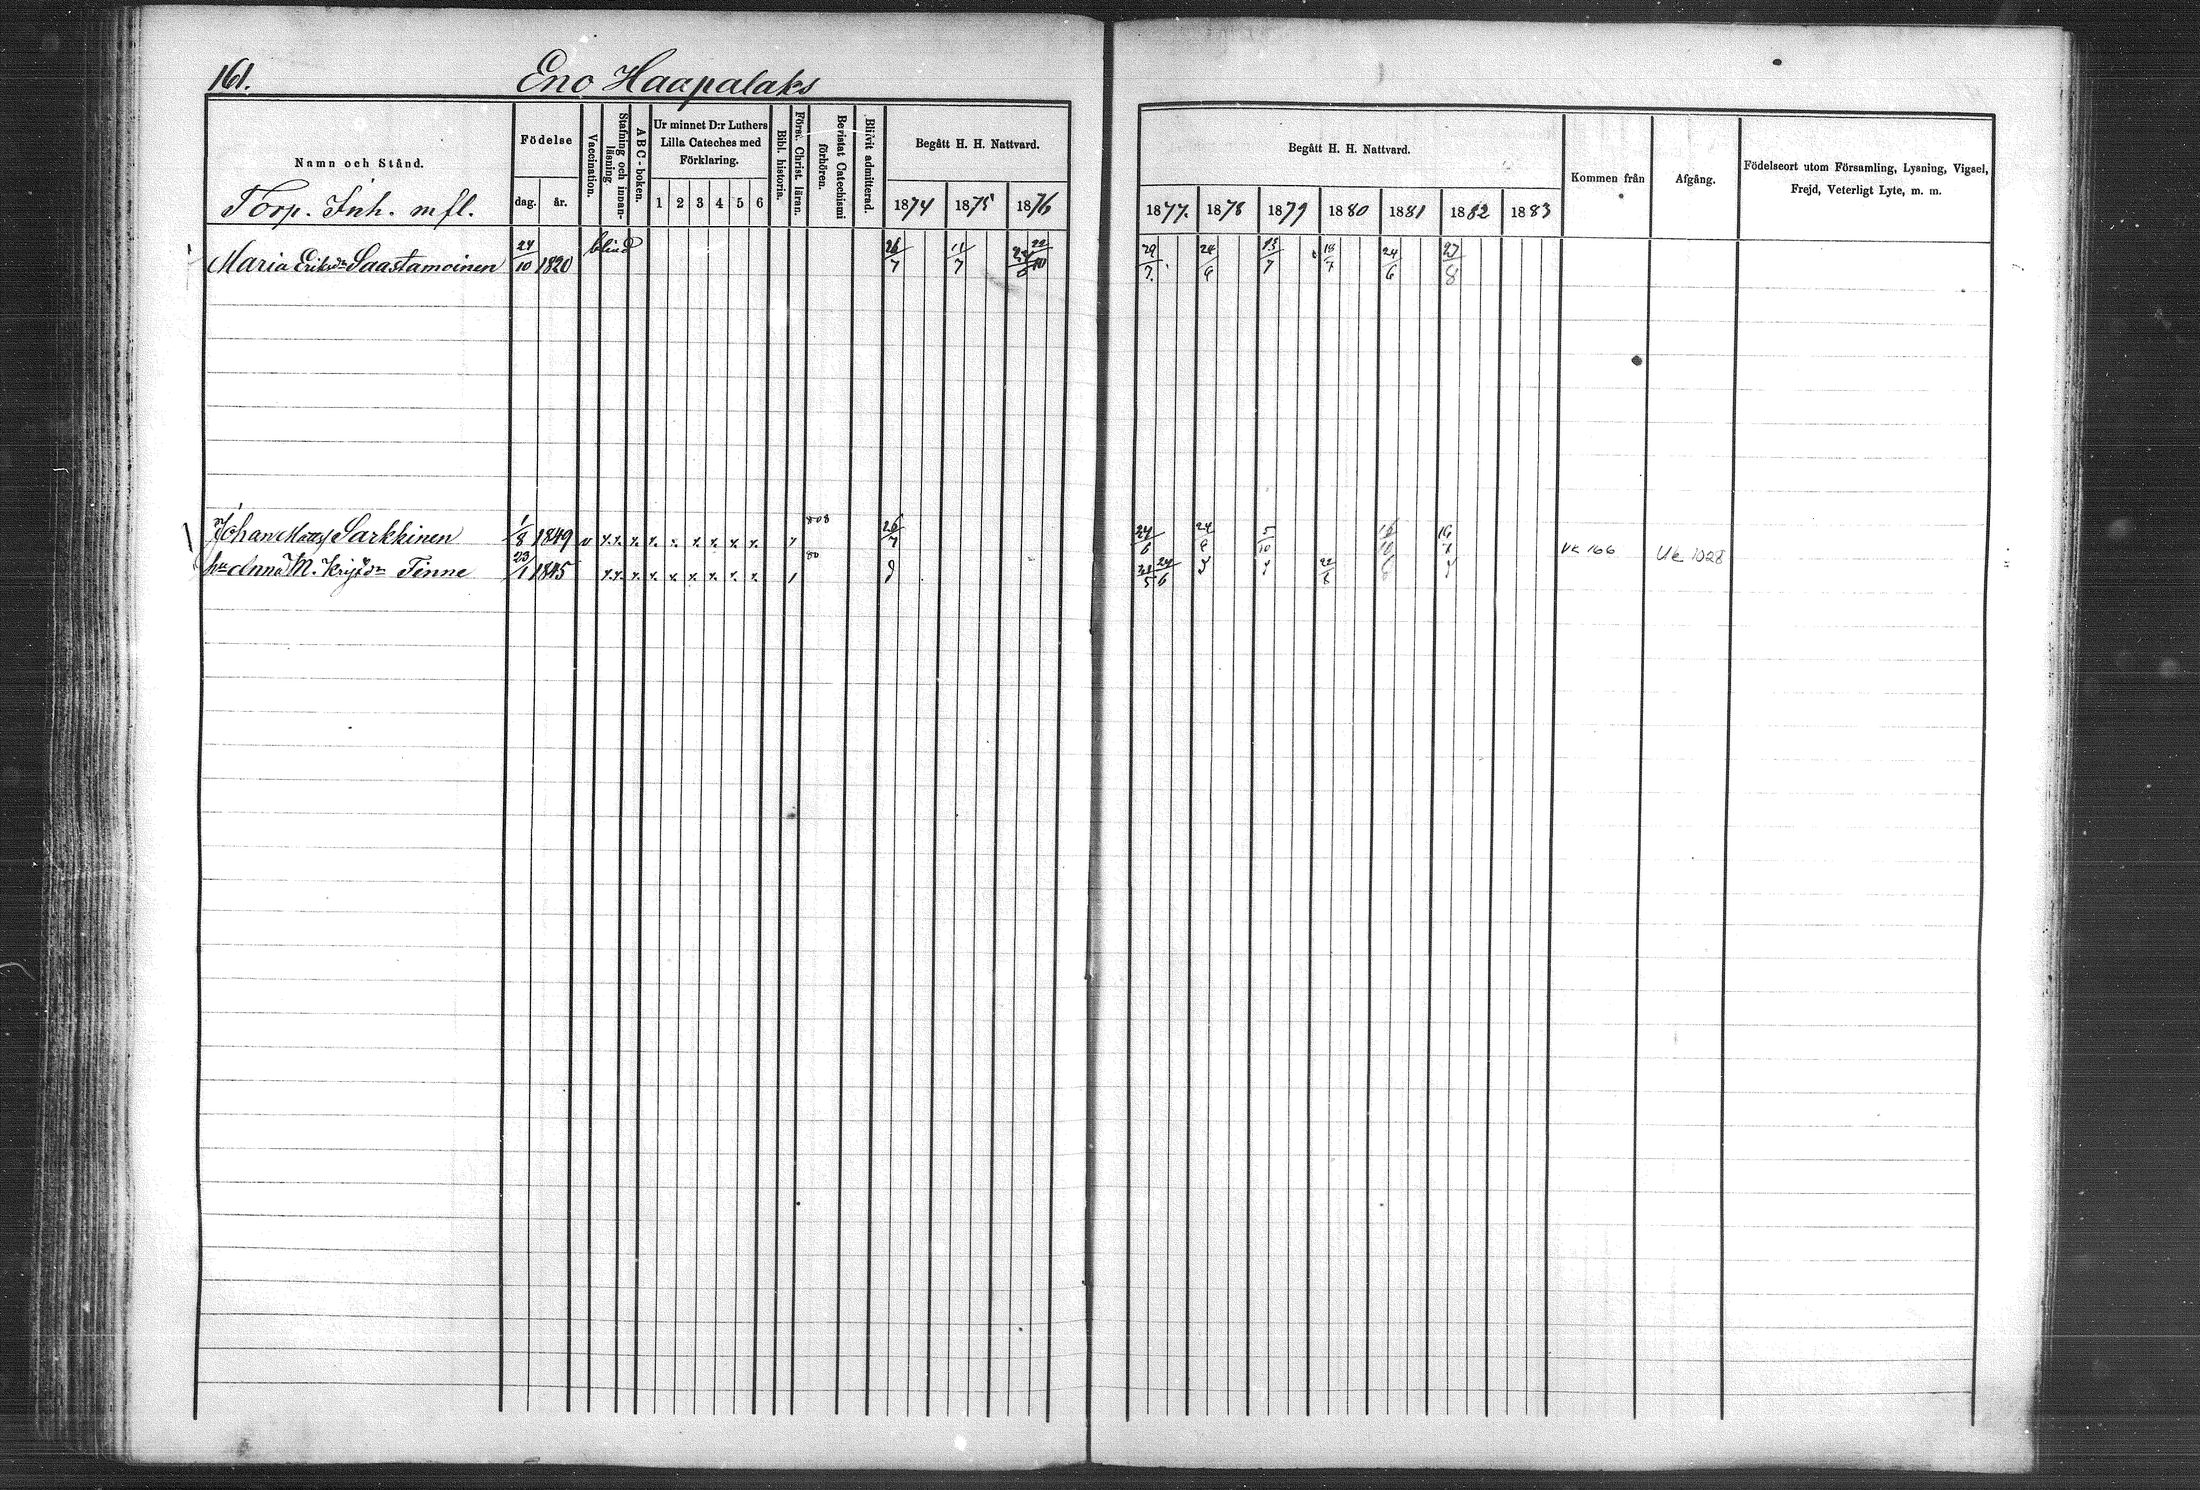 161.
Eno Haapalaks
Namn och Stånd.
Torp. Inh. mfl.
Födelse
dag. år.
Vaccination.
Stafning och innanläsning
ABC-boken.
Ur minnet D:r Luthers Lilla Cateches med Förklaring.
1 2 3 4 5 6
Bibl. historia.
Först. Christ. läran.
Bevistat Catechismi förhören.
Blifvit admitterad.
Begått H. H. Nattvard.
1874 1875 1876
Begått H. H. Nattvard.
1877. 1878 1879 1880 1881 1882 1883
Kommen från
Afgång.
Födelseort utom Församling, Lysning, Vigsel, Frejd, Veterligt Lyte, m. m.
Maria Eriksdn Saastamoinen 24/10 1820 blind 26/7 11/7 22/10 29/7. 24/9 13/7 18/7 24/6 27/8
Johan Matts Sarkkinen 1/8 1849 v x x x x x x x x x 808 26/7 24/6 24/9 5/10 16/7 Uk 166 Uk 1028
hu Anna M. Kristdn Tinne 23/1 1845 x x x x x x x x x 80 24/6 22/8